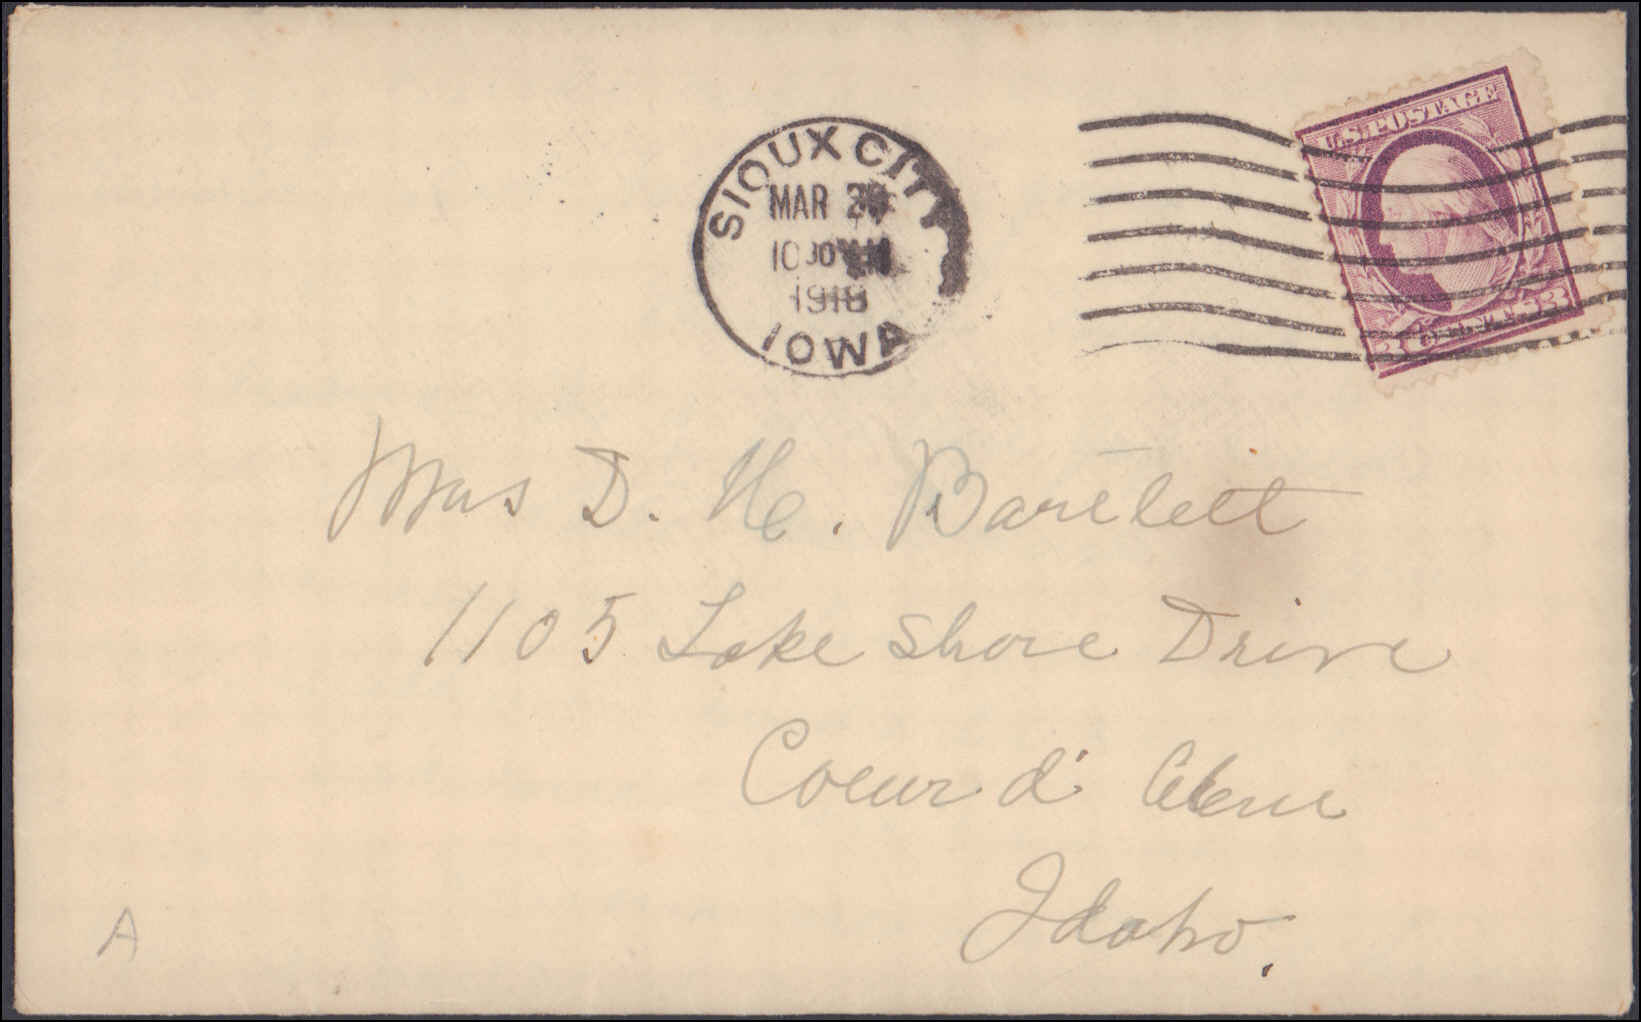 SIOUX CITY
MAR
10
1918
IOWA
U.S. POSTAGE
3 CENTS 3
Mrs D. H. Bartlett
1105 Lake Shore Drive
Coeur d' Alene
Idaho.
A